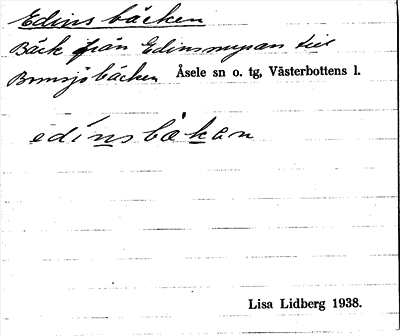 Edinsbäcken
Bäck från Edinsmyran till
Bomsjöbäcken Åsele sn o. tg, Västerbottens l.
edínsbäkan
Lisa Lidberg 1938.